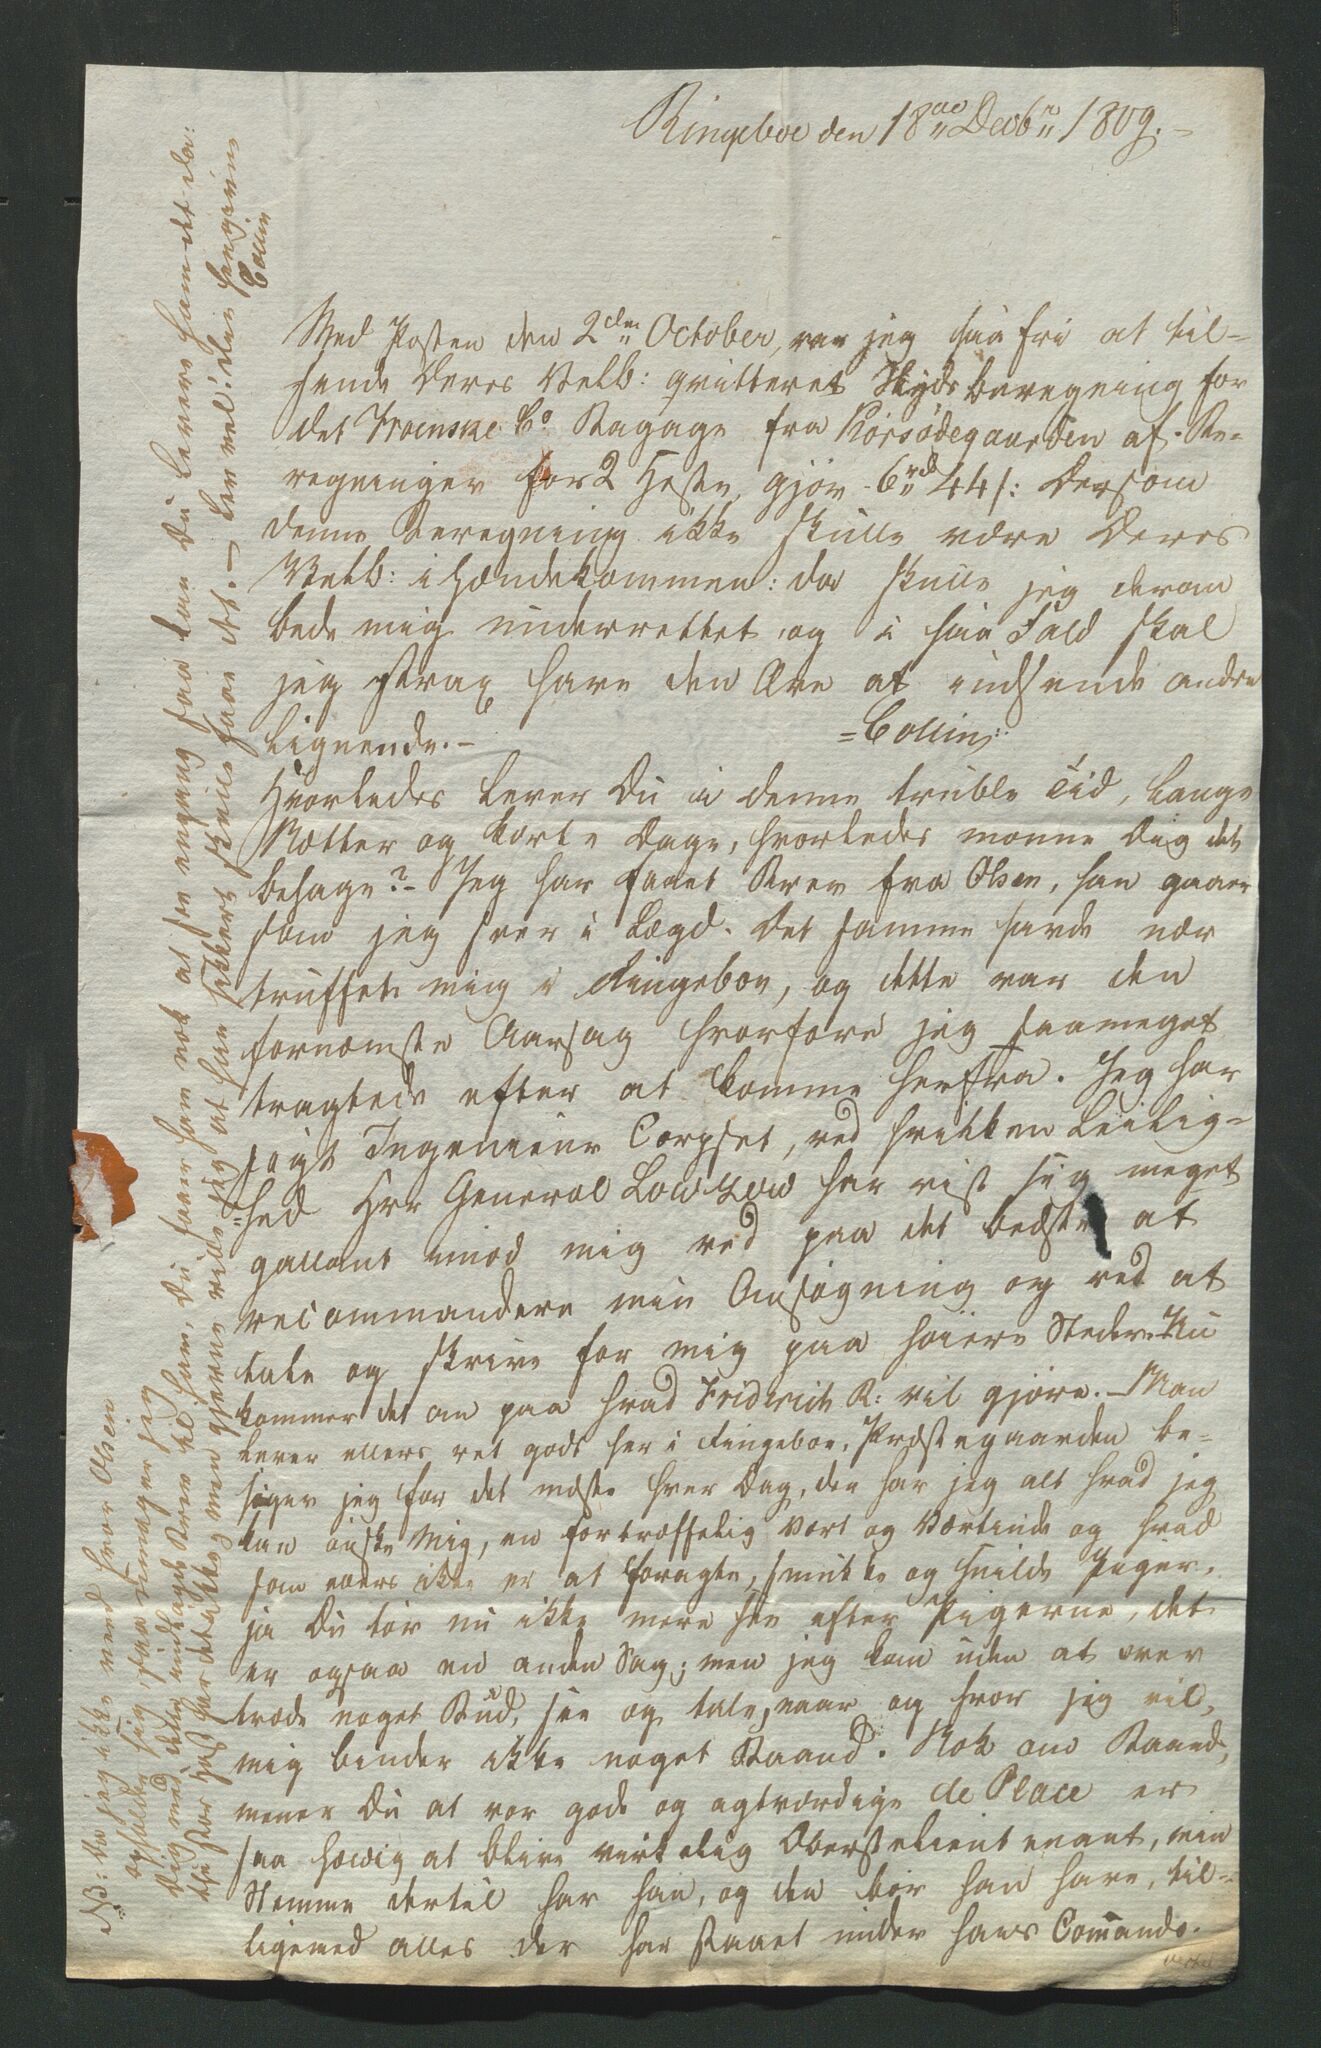 Ringeboe den 18de Decbr 1809.
Med Posten den 2den October, var jeg saa fri at til-
sende Deres Velb: qvitteret Skyds beregning for
det Co Bagage fra Korsødegaarden af. Be-
regninger for 2 Heste, gjør 6rd 44 s: Dersom
denne Beregning ikke skulle være Deres
Velb: ihændekommen: da skulle jeg derom
bede mig underrettet, og i saa Fald skal
jeg strax have den Ære at indsende andre
Lignende. -
= Collin:
Hvorledes lever Du i denne truble Tid, lange
Nætter og korte Dage, hvorledes monne Dig det
behage? - Jeg har faaet Brev fra Olsen, han gaaer
som jeg seer i Lægd. Det samme havde nær
truffet mig i Ringeboe, og dette var den
fornemste Aarsag hvorfore jeg saameget
tragtede efter at komme herfra. Jeg har
søgt Ingenieur Corpset, ved hvilken Leilig-
=hed Hr General Lowzow har vist sig meget
gallant imod mig ved paa det bedste at
recommandere min Ansøgning og ved at
tale og skrive for mig paa høiere Steder. Nu
kommer det an paa hvad Friderich R: vil gjøre. - Man
lever ellers ret godt her i Ringeboe, Præstegaarden be-
søger jeg for det meste hver Dag, der har jeg alt hvad jeg
kan ønske mig, en fortræffelig Vært og Værtinde og hvad
som ellers ikke er at foragte, smukke og snilde Piger.
ja Du tør nu ikke mere see efter Pigerne, det
er ogsaa en anden Sag; men jeg kan uden at over
træde noget Bud, see og tale, naar og hvor jeg vil,
mig binder ikke noget Baand. Nok om Baand,
mener Du at vor gode og agtværdige de Place er
saa heldig at blive virkelig Oberstelieutenant, min
Stemme dertil har han, og den bør han have, til-
ligemed alles der har staaet under hans Commando.
NB: Da jeg ikke veed hvor Olsen
opholder sig, saa umager jeg
Dig med dette indlagte Brev til ham, Du seer ham nok at see engang saa kan Du levere ham det da:
det har hast har det ikke; men gjerne vilde jeg at han sikkert skulle faae det. - Lev vel! din hengivne
Collin